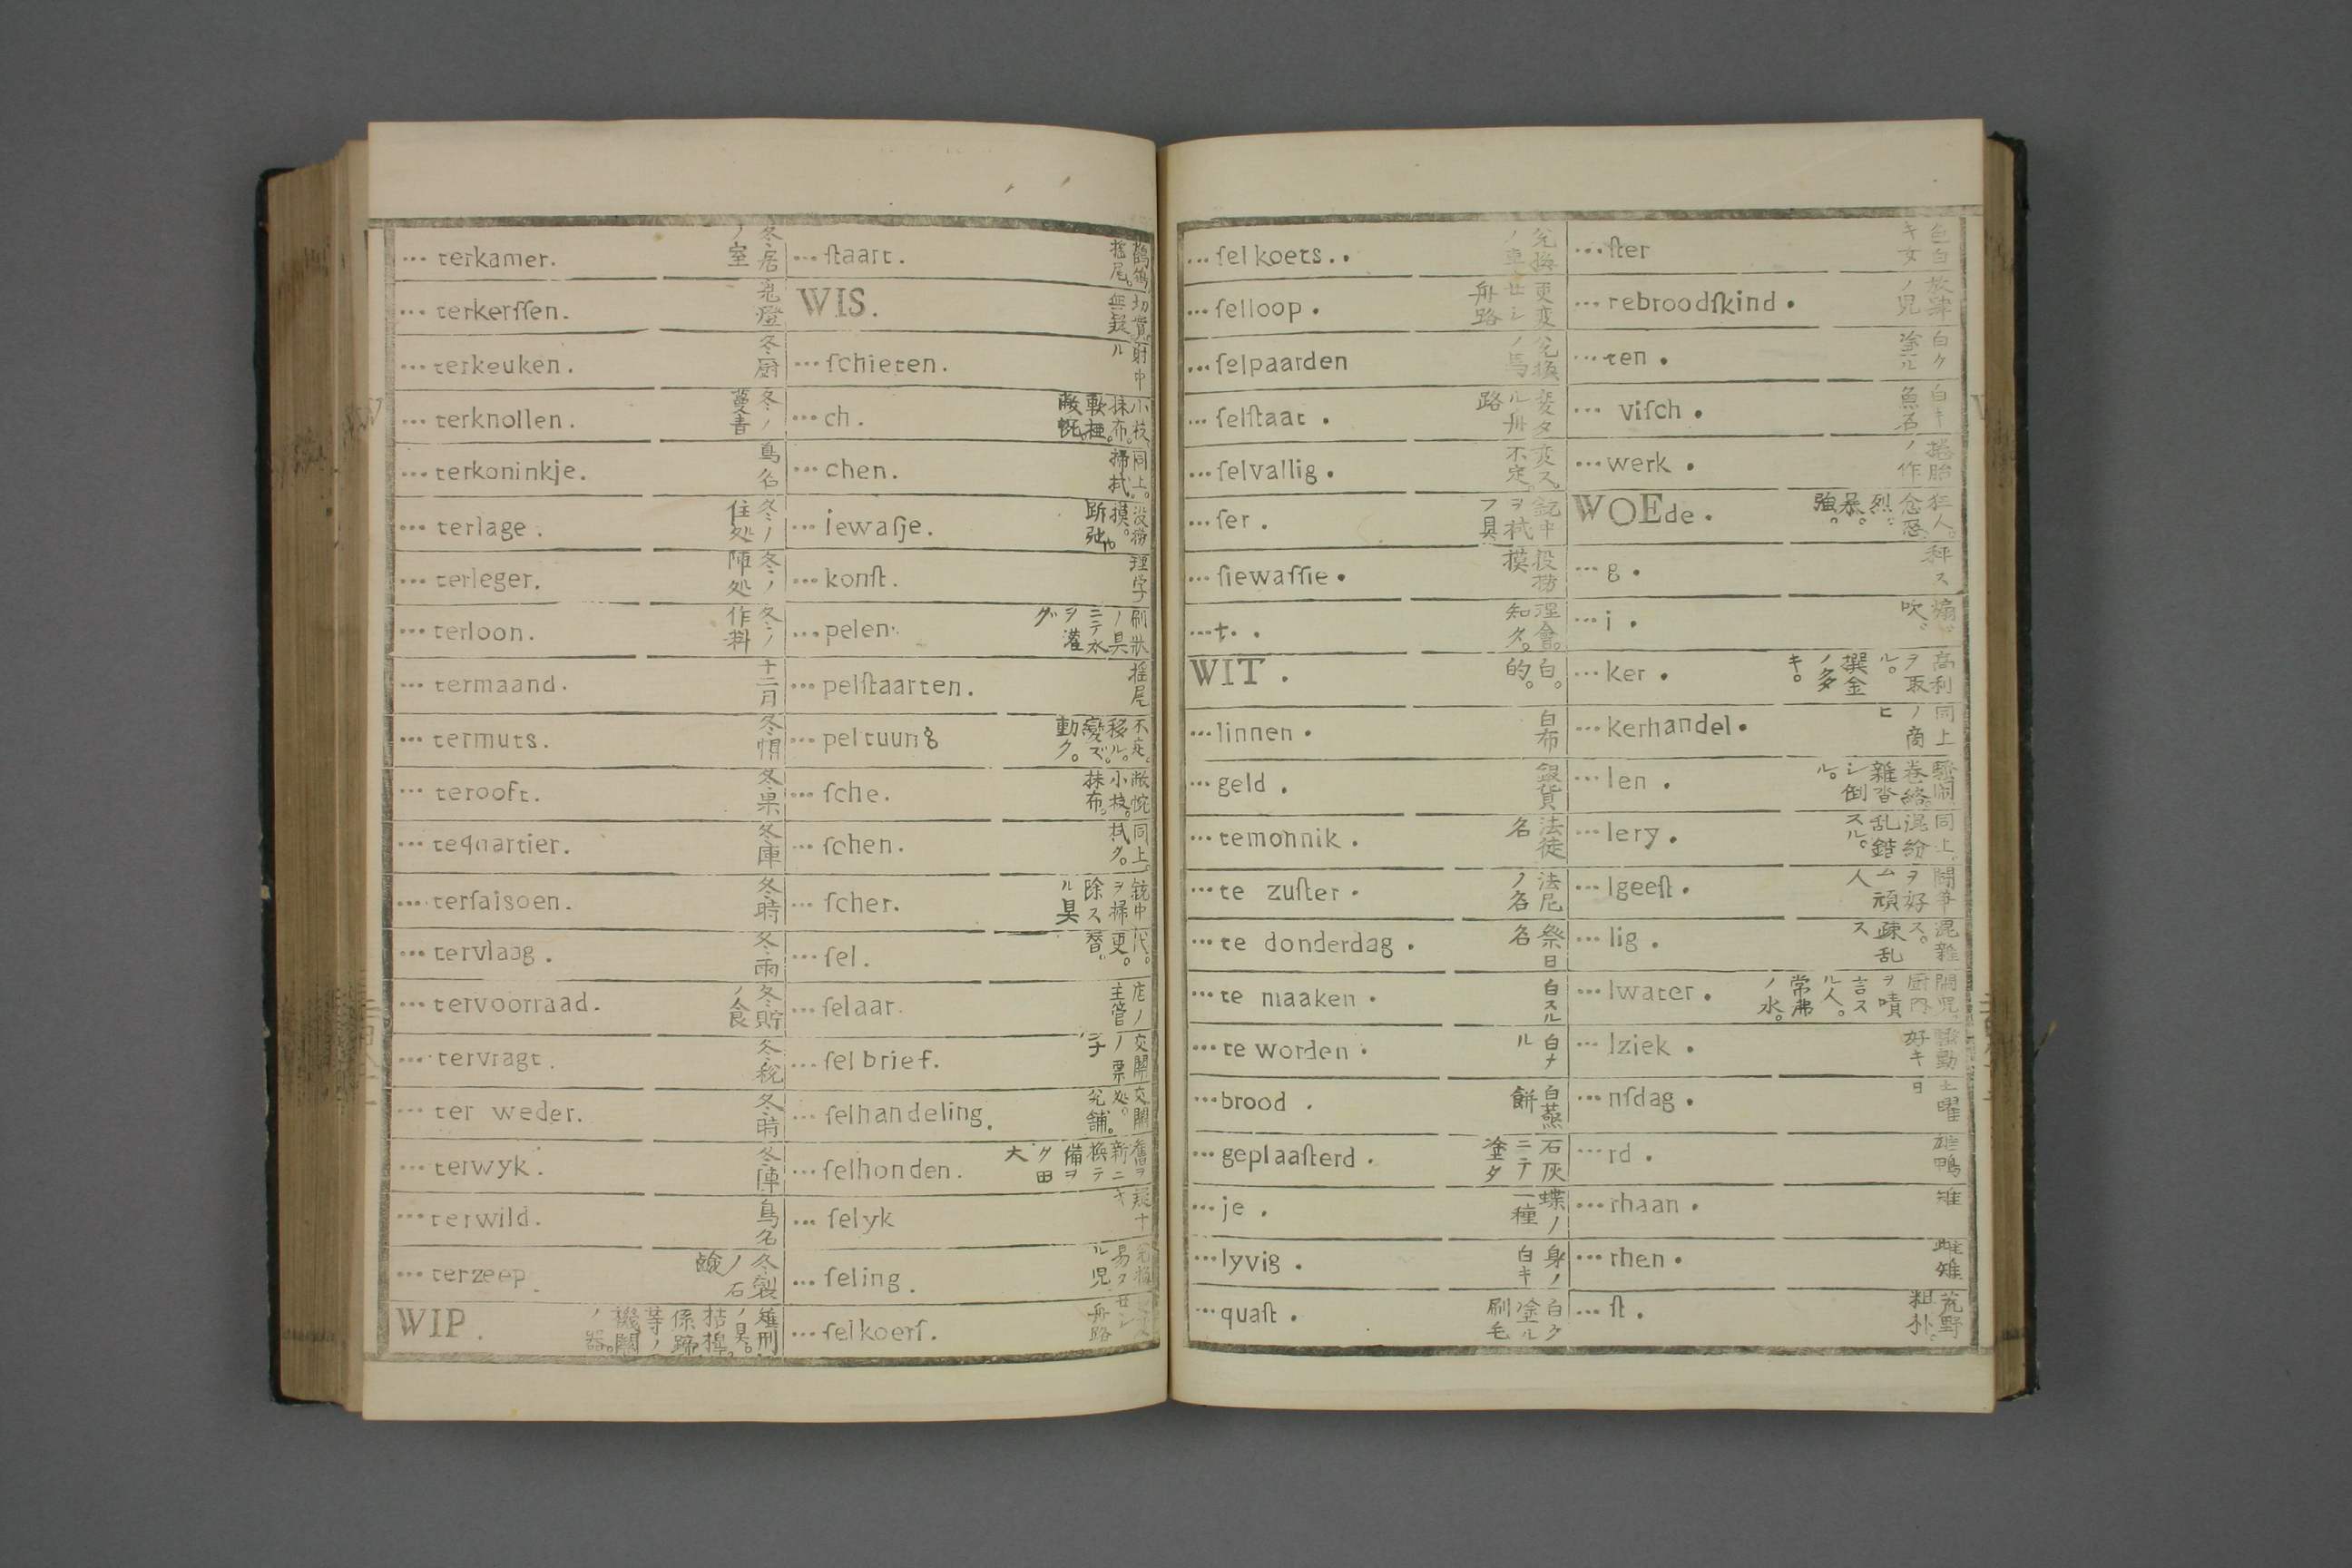 … terkamer. 冬居ノ室
… terkerſſen. 冬燈
… terkeuken. 冬厨
… terknollen. 冬ノ蔓青
… terkoninkje. 鳥名
… terlage. 冬ノ住処
… terleger. 冬ノ陣処
… terloon. 冬ノ作料
… termaand. 十二月
… termuts. 冬帽
… terooft. 冬果
… tequartier. 冬庫
… terſaisoen. 冬時
… tervlaag. 冬雨
… tervoorraad. 冬貯ノ食
… tervragt. 冬税
… ter weder. 冬時
… terwyk. 冬陣
… terwild. 鳥名
… terzeep. 冬製ノ石鹸
WIP.
… ſtaart. 鶺鴒 搖尾。
WIS. 切實。無疑
… ſchieten. 射中ル
… ch. 小枝。抹布。
… chen. 同上。掃拭
… iewaſje.
… konſt. 理学
… pelen. 刷狀ノ具ニテ水ヲ灌グ
… pelſtaarten. 搖尾
… peltuung 不定。移ル。變ズ。動ク。
… ſche. 小枝。抹布
… ſchen. 同上。拭ク。
… ſcher. 銃中ヲ掃除スル具
… ſel. 代。更。替。
… ſelaar. 店ノ主管
… ſelbrief. 交關ノ票子
… ſelhandeling. 交關処。兌舗。
… ſelhonden.
… ſelyk
… ſeling.
… ſelkoerſ. 舟路
… ſelkoets.. 兌換ノ車
… ſelloop. 更変セシ舟路
… ſelpaarden 兌換ノ馬
… ſelſtaat. 変タル舟路
… ſelvallig. 変ス。不定。
… ſer. 銃中ヲ拭フ具
… ſiewaſſie.
… t. 理會。知タ。
WIT. 白。的。
… linnen. 白布
… geld. 銀貨
… temonnik. 法徒名
… te zuſter. 法尼ノ名
… te donderdag. 祭日名
… te maaken. 白スル
… te worden. 白ナル
… brood. 白蒸餅
… geplaaſterd. 石灰ニテ塗タ
… je. 蝶ノ一種
… lyvig. 身ノ白キ
… quaſt. 白ク塗ル刷毛
… ſter 色白キ女
… rebroodſkind. 放肆ノ児
… ten. 白ク塗ル
… viſch. 白キ魚名
… werk. 捲胎ノ作
WOEde. 狂人。忿怒。烈。暴。強。
… g. 秤ス
… i. 煽。吹。
… ker. 高利ヲ取ル。撰金ノ多キ。
… kerhandel. 同上ノ商ヒ
… len. 騷鬧。卷絡。雜沓シ倒ル。
… lery. 同上。混紛乱錯スル。
… lgeeſt. 鬪爭ヲ好ム頑人
… lig. 混雜ス。疎乱ス
… lwater.
… lziek. 騷動好キ
… nſdag. 土曜日
… rd. 雄鴨
… rhaan. 雉
… rhen. 雌雉
… ſt. 荒野 粗朴。